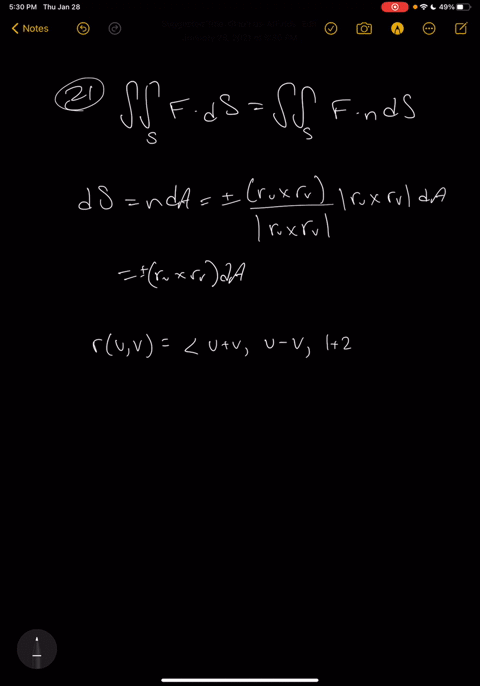 5:30 PM Thu Jan 28
49%
Notes
21 ∬_S F·dS = ∬_S F·n dS
dS = n dA = ± (r_u × r_v) / |r_u × r_v| |r_u × r_v| dA
= ±(r_u × r_v) dA
r(u,v) = < u+v, u-v, 1+2